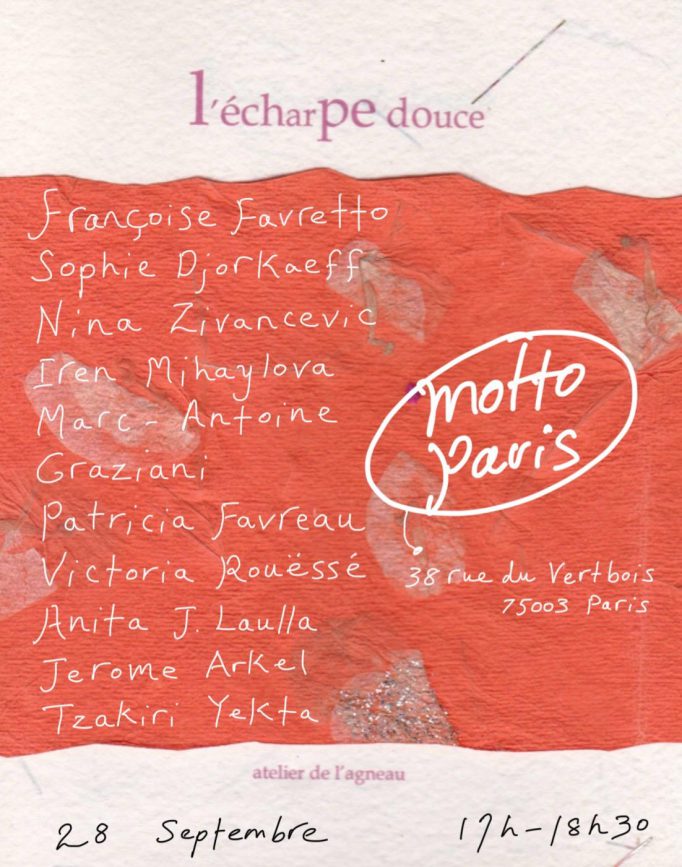 l'écharpe douce
Françoise Favretto
Sophie Djorkaeff
Nina Zivancevic
Iren Mihaylova
Marc-Antoine
Graziani
Patricia Favreau
Victoria Rouëssé
Anita J. Laulla
Jerome Arkel
Tzakiri Yekta
motto
paris
38 rue du Vertbois
75003 Paris
atelier de l'agneau
28 Septembre 17h-18h30